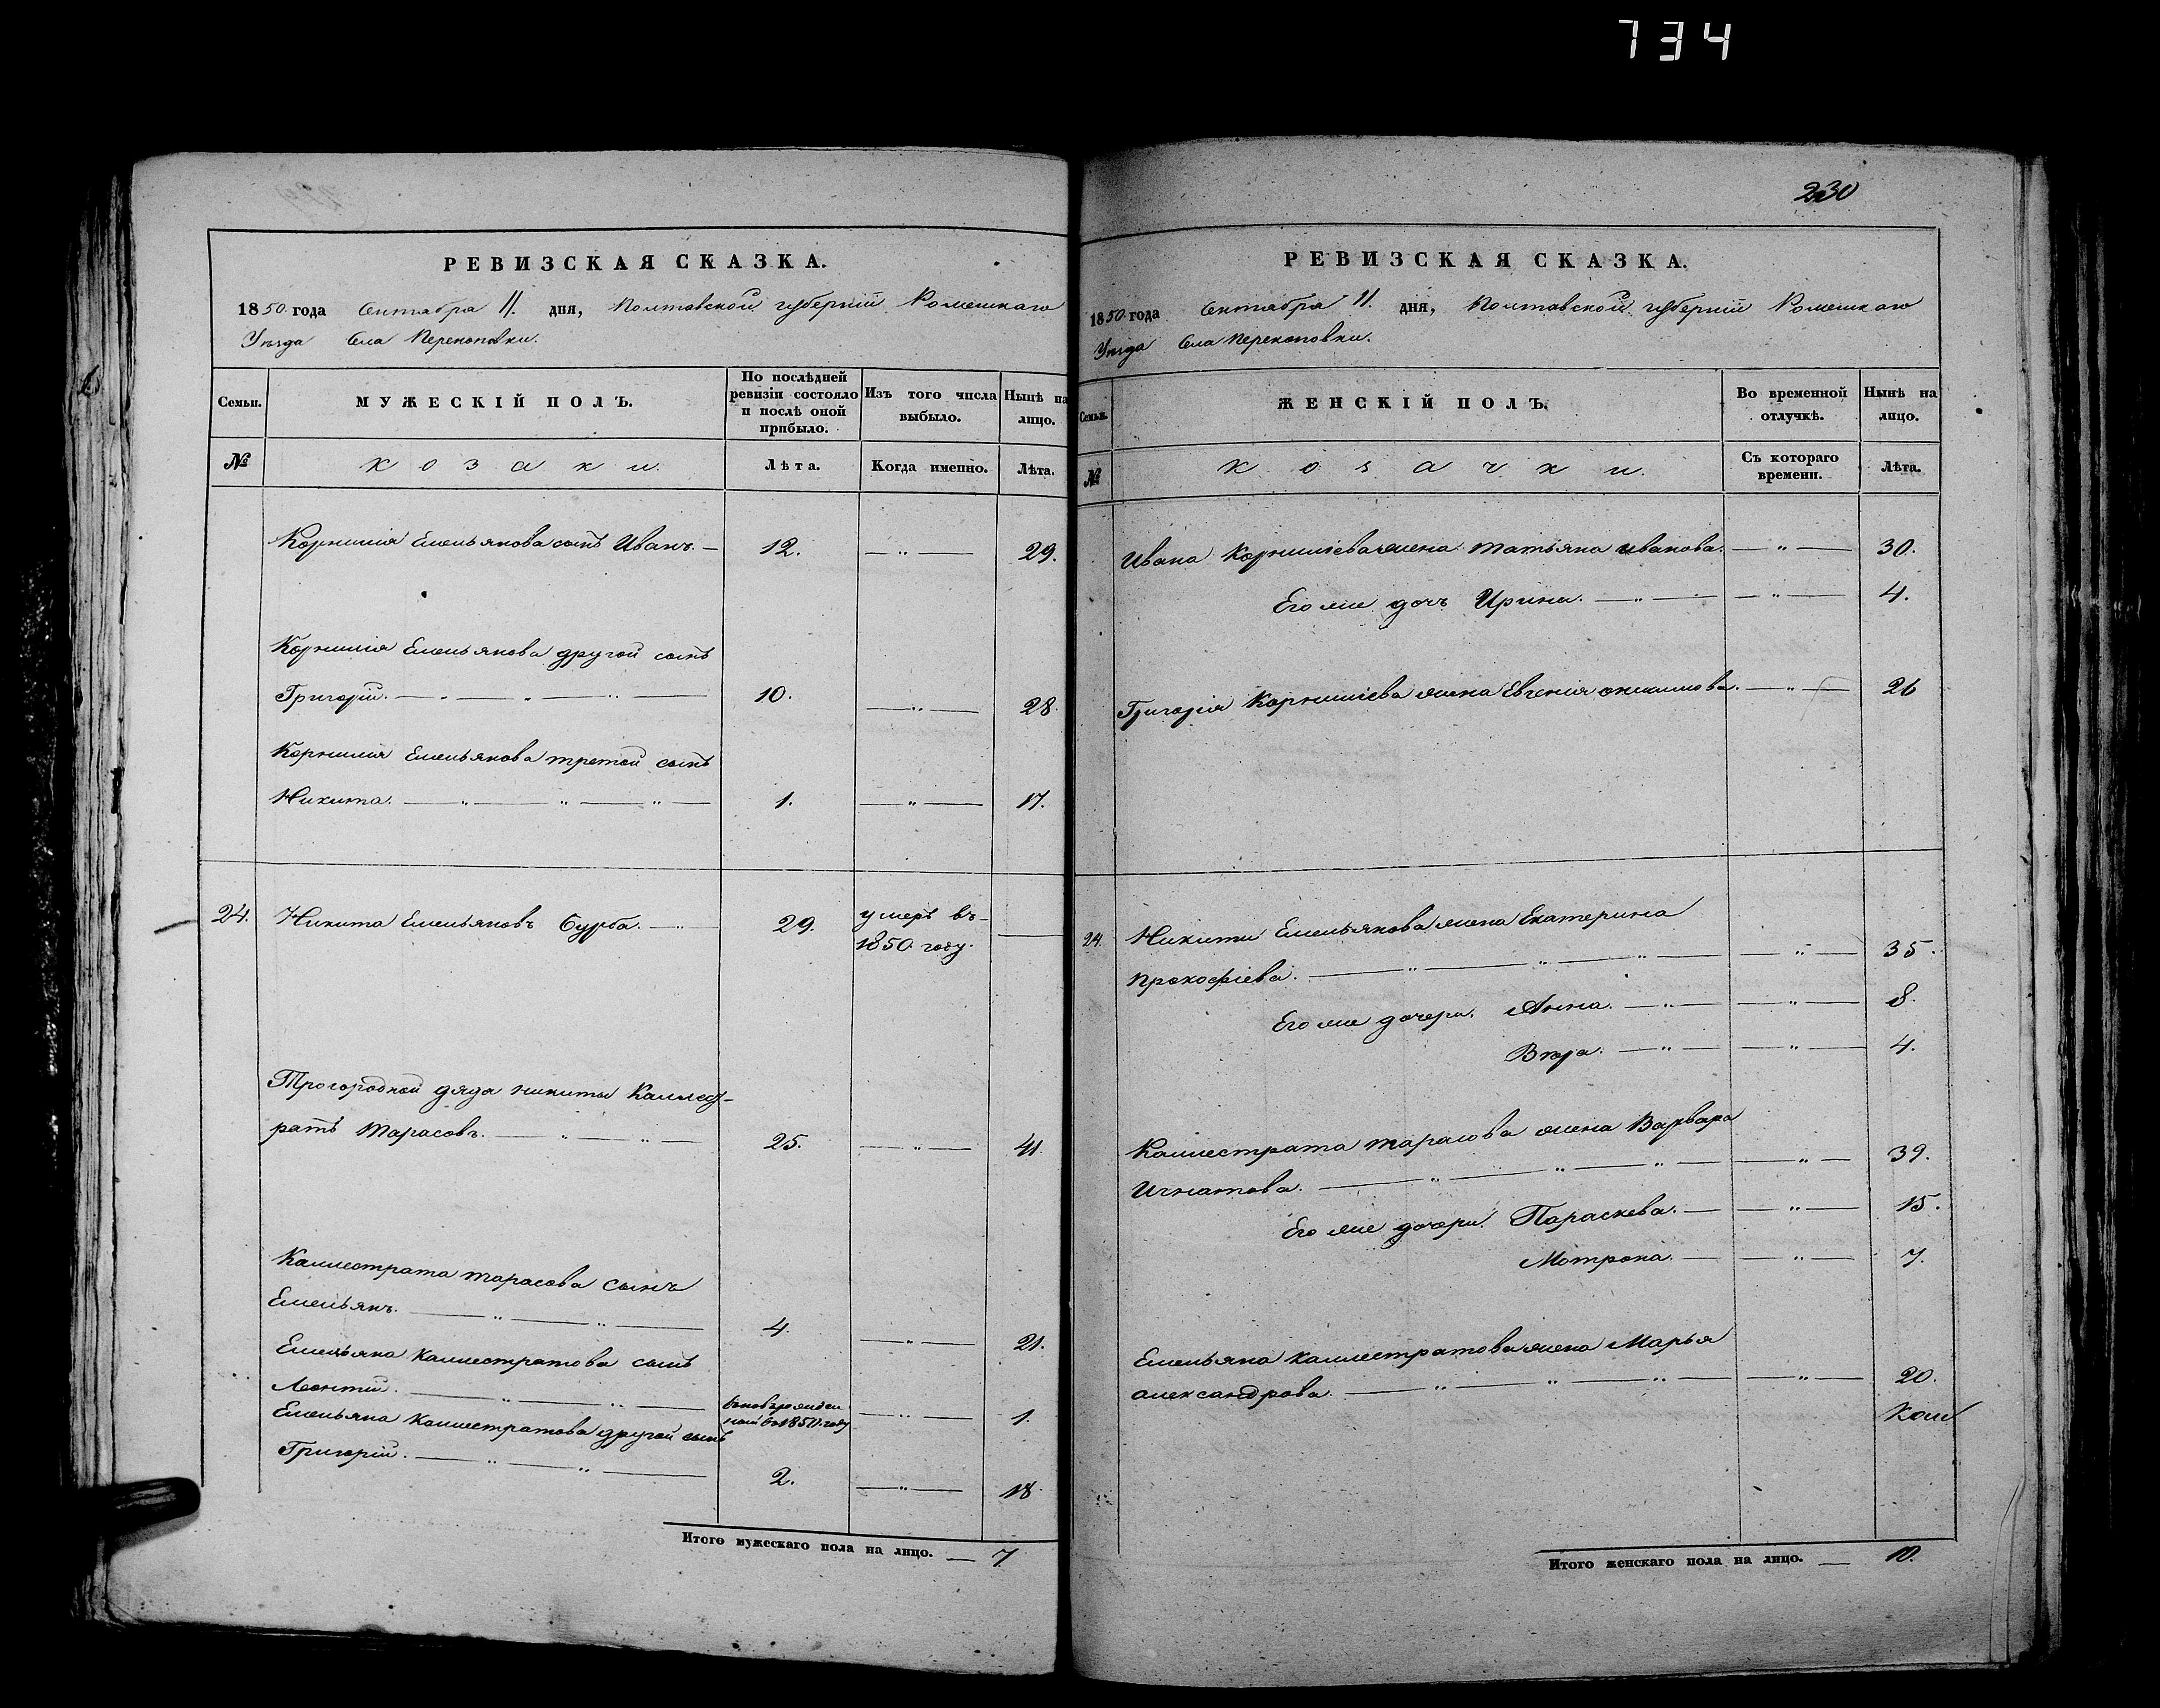 734
230
РЕВИЗСКАЯ СКАЗКА.
1850 года Сентября 11. дня, Полтавской губерніи Роменскаго
Уѣзда Села Перекоповки.
Семьи. МУЖЕСКІЙ ПОЛЪ. По послѣдней ревизіи состояло и послѣ оной прибыло. Изъ того числа выбыло. Нынѣ на лицо.
№ козаки. Лѣта. Когда именно. Лѣта.
Корнилія Емельянова сынъ Иванъ. — 12. — „ — 29.
Корнилія Емельянова другой сынъ
Григорій. — 10. — „ — 28.
Корнилія Емельянова третой сынъ
Никита. — „ — „ — „ — 1. — „ — 17.
24. Никита Емельяновъ Бурба. — 29. умеръ въ
1850 году. —
Трогородной дядя Никиты Каллест-
ратъ Тарасовъ. — „ — „ — 25. — „ — 41.
Каллестрата Тарасова сынъ
Емельянъ. — „ — „ — 4. — „ — 21.
Емельяна Каллестратова сынъ
Леонтій. — „ — „ — вновьрожден
ной въ 1850 году — „ — 1.
Емельяна Каллестратова другой сынъ
Григорій. — „ — „ — 2. — „ — 18.
Итого мужескаго пола на лицо. — 7.
РЕВИЗСКАЯ СКАЗКА.
1850 года Сентября 11. дня, Полтавской губерніи Роменскаго
Уѣзда Села Перекоповки.
Семьи. ЖЕНСКІЙ ПОЛЪ. Во временной отлучкѣ. Нынѣ на лицо.
№ козачки. Съ котораго времени. Лѣта.
Ивана Корниліева жена Татьяна Иванова. — „ — 30.
Его же дочь Ирина. — „ — — „ — 4.
Григорія Корниліева жена Евгенія — „ — 26
24. Никиты Емельянова жена Екатерина
Прокофіева. — „ — „ — „ — — „ — 35.
Его же дочери. Анна. — „ — — „ — 8.
Вѣра. — „ — — „ — 4.
Каллестрата Тарасова жена Варвара
Игнатова. — „ — „ — „ — — „ — 39.
Его же дочери Параскева. — — „ — 15.
Мотрона. — — „ — 7.
Емельяна Каллестратова жена Марья
Александрова. — „ — „ — „ — — „ — 20.
Итого женскаго пола на лицо. — 10.